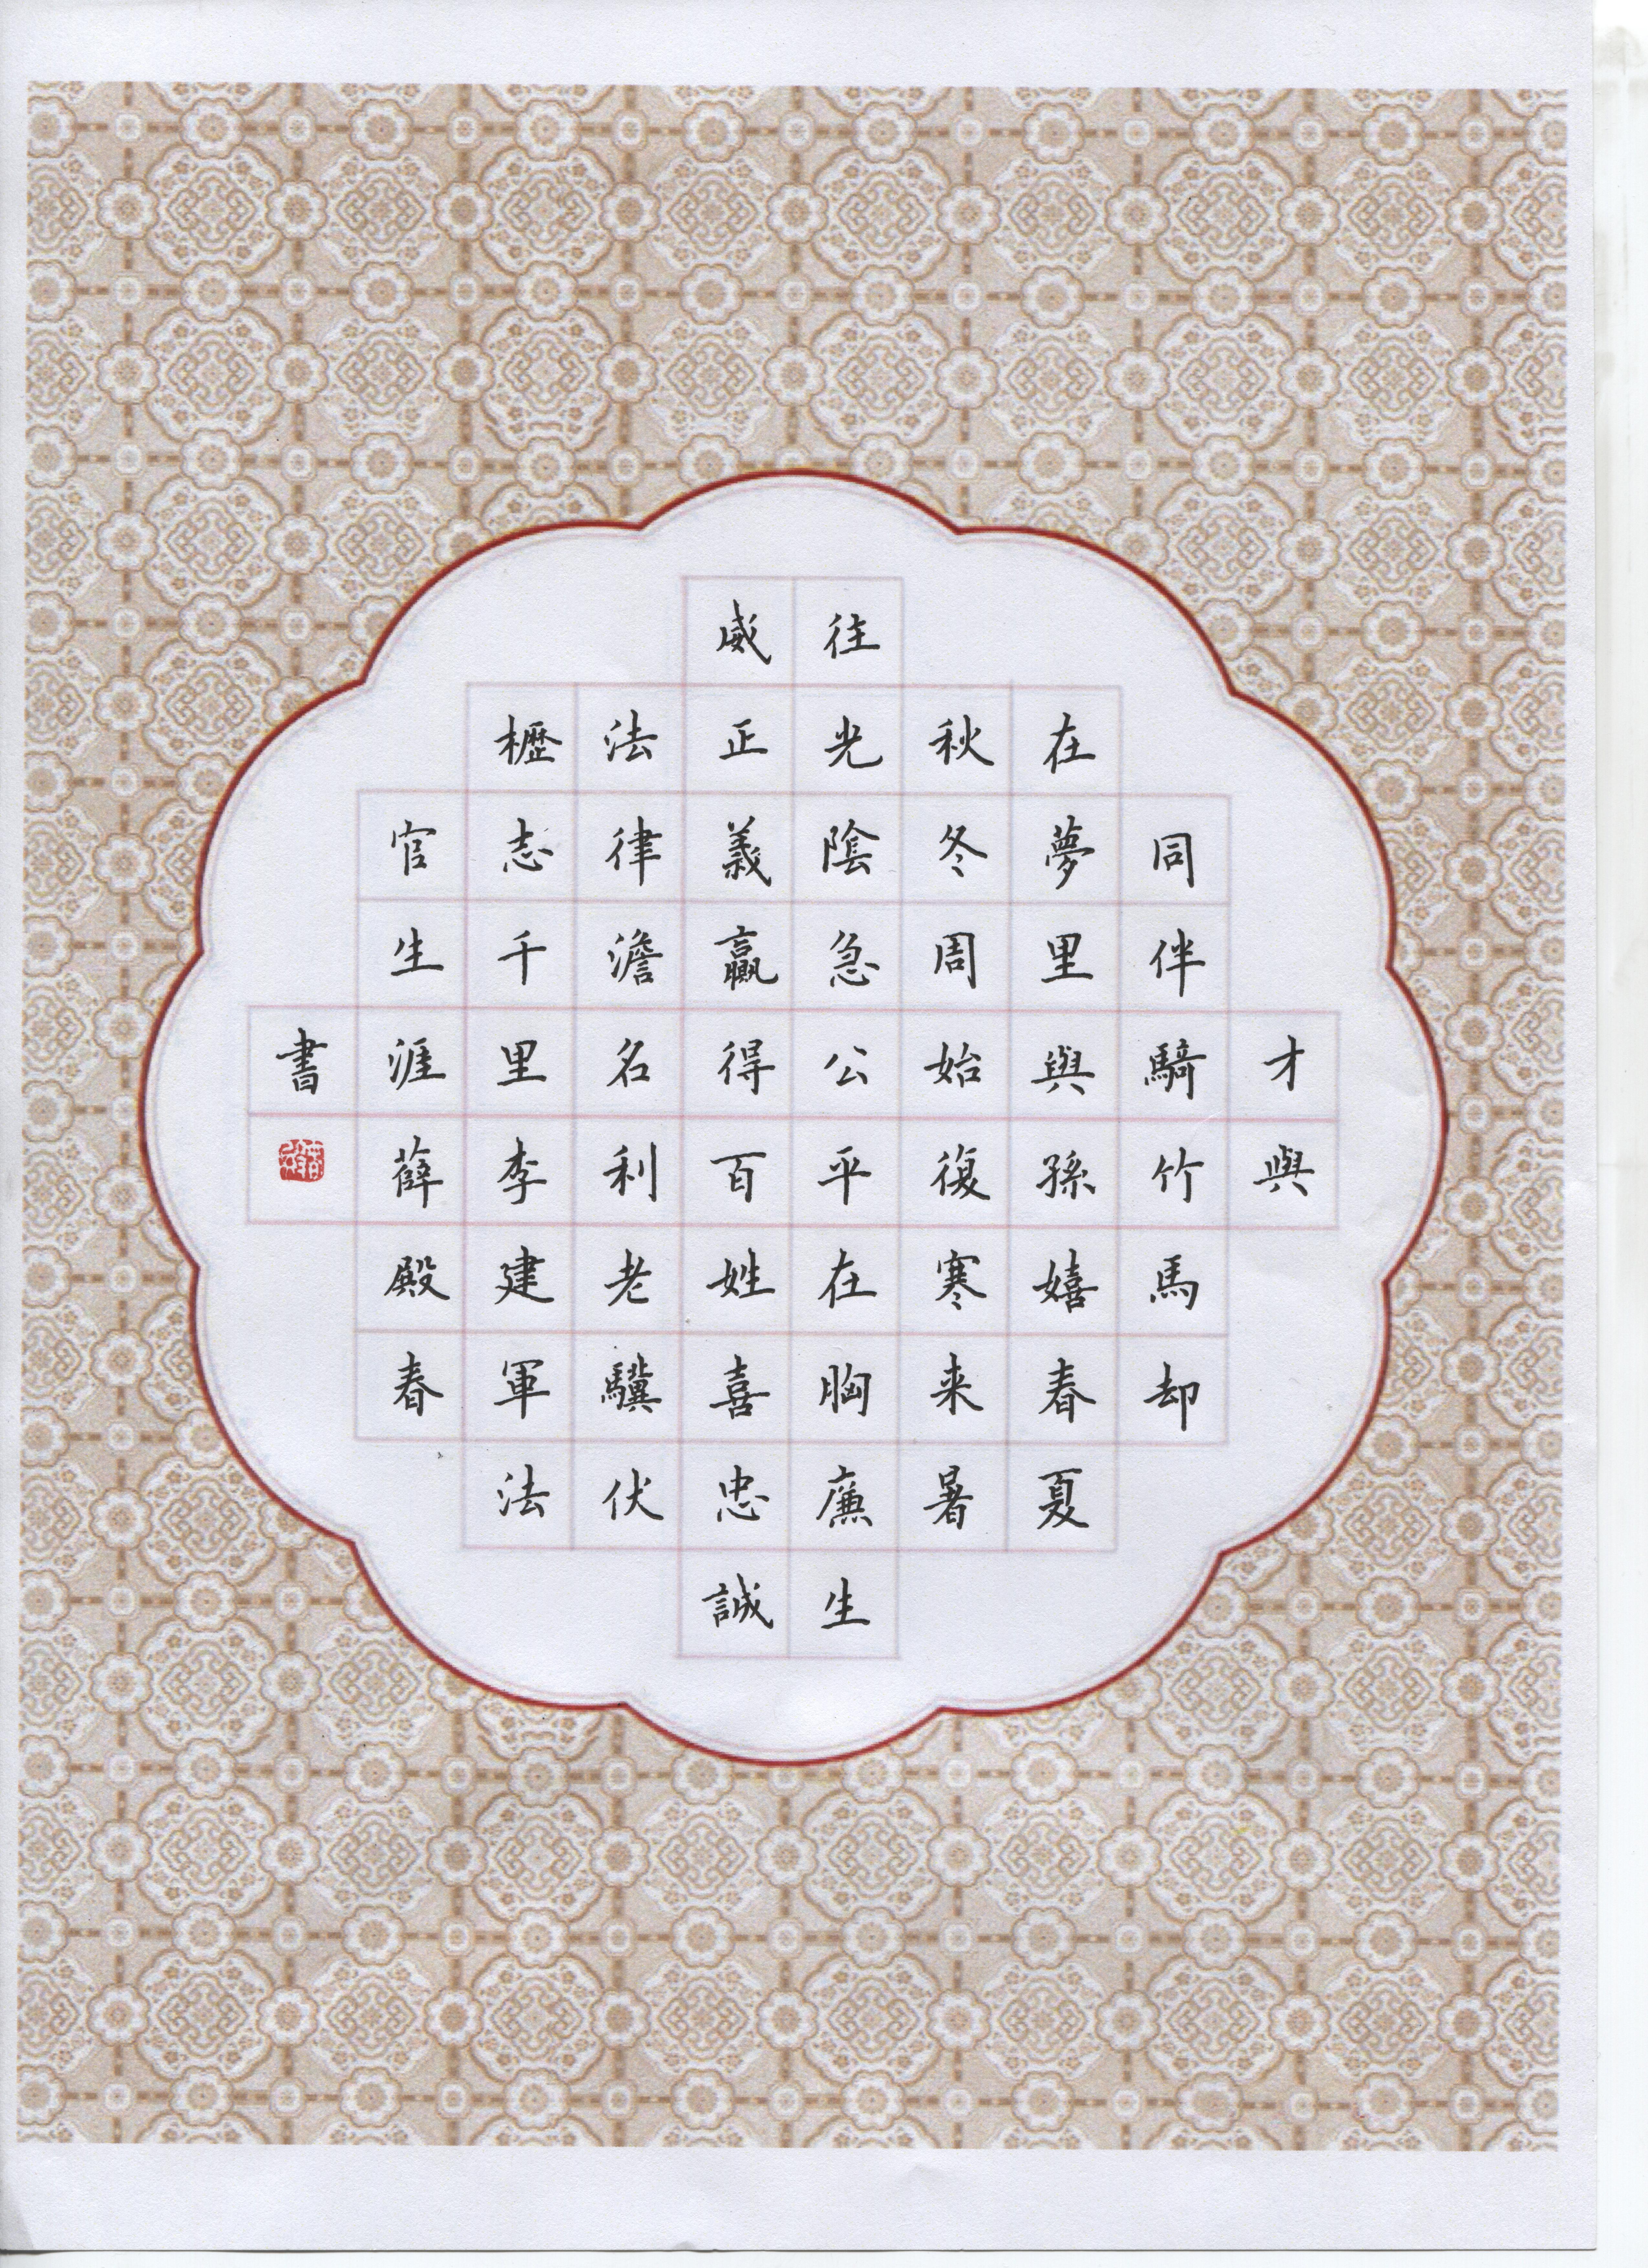 才與
同伴騎竹馬却
在夢里與孫嬉春夏
秋冬周始復寒来暑
往光陰急公平在胸廉生
威正義贏得百姓喜忠誠
法律澹名利老驥伏
櫪志千里李建軍法
官生涯薛殿春
書